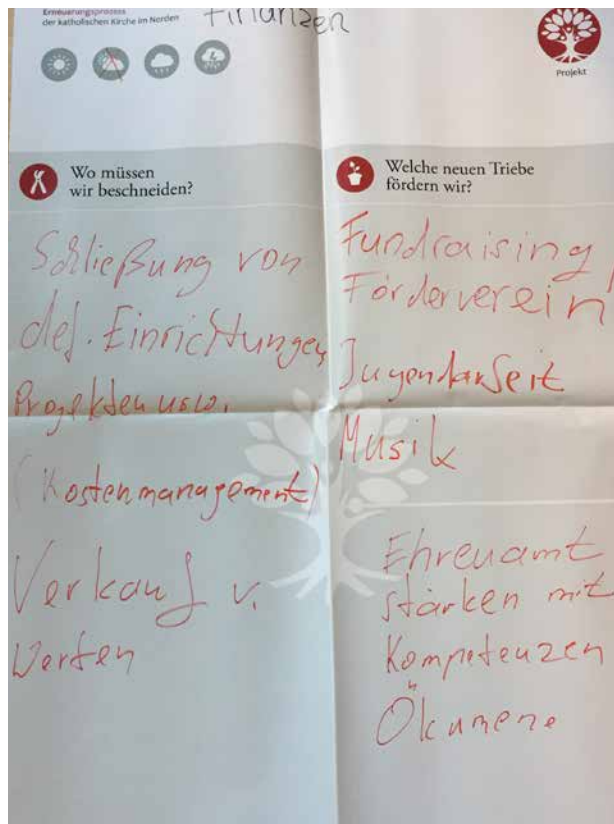 Erneuerungsprozess
der katholischen Kirche im Norden
Finanzen
Projekt
Wo müssen
wir beschneiden?
Schließung von
def. Einrichtungen,
Projekten usw.
(Kostenmanagement)
Verkauf v.
Werten
Welche neuen Triebe
fördern wir?
Fundraising
Förderverein
Jugendarbeit
Musik
Ehrenamt
stärken mit
Kompetenzen
Ökumene